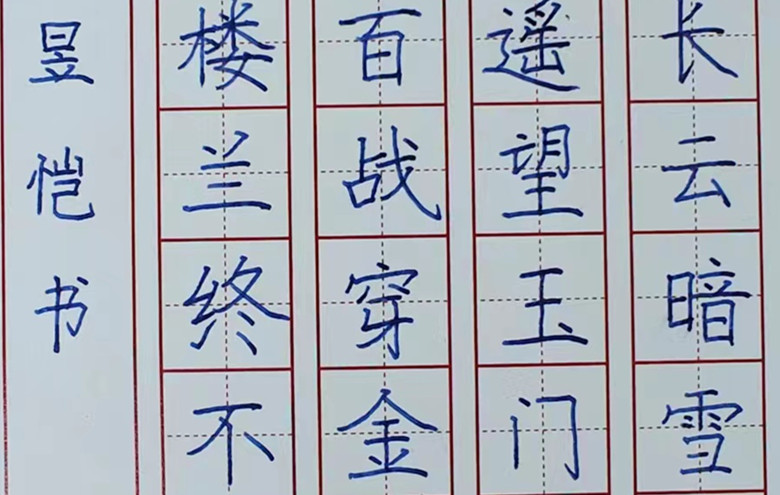 长云暗雪
遥望玉门
百战穿金
楼兰终不
昱恺书